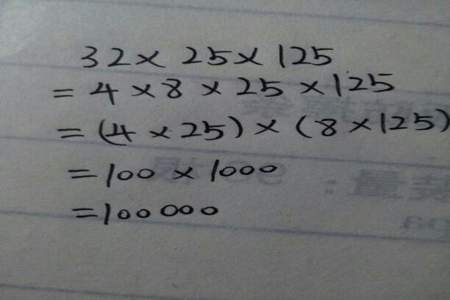 32×25×125
=4×8×25×125
=(4×25)×(8×125)
=100×1000
=100000